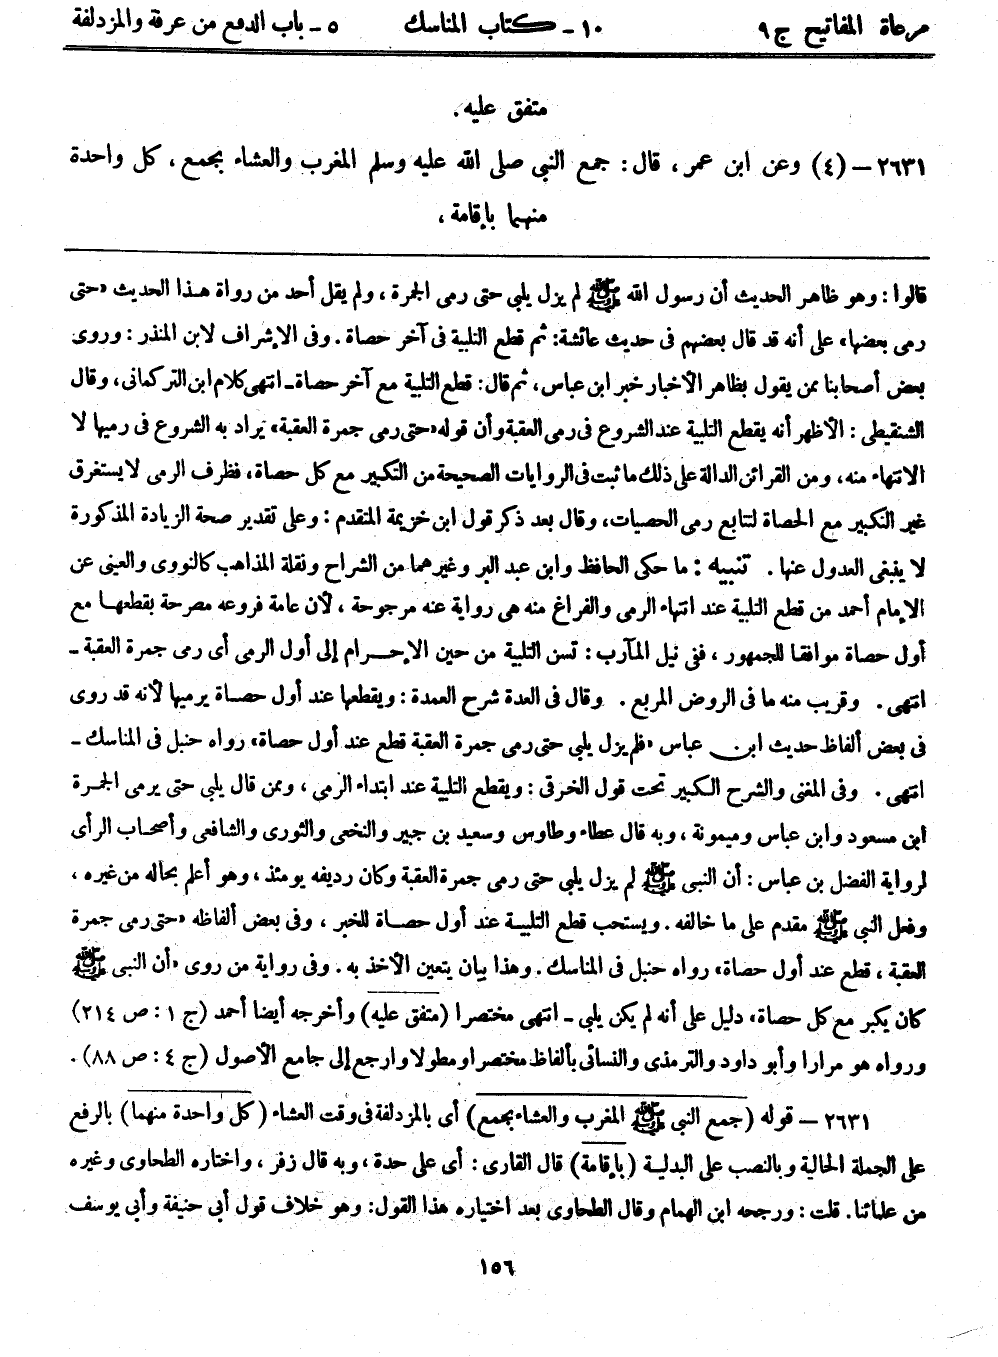 مرعاة المفاتيح ج ٩ ١٠ - كتاب المناسك ٥ - باب الدفع من عرفة والمزدلفة
متفق عليه.
٢٦٣١ - (٤) وعن ابن عمر، قال: جمع النبي صلى الله عليه وسلم المغرب والعشاء بجمع، كل واحدة
منهما بإقامة،
قالوا: وهو ظاهر الحديث أن رسول الله ﷺ لم يزل يلبي حتى رمى الجمرة، ولم يقل أحد من رواة هذا الحديث «حتى
رمى بعضها» على أنه قد قال بعضهم فى حديث عائشة: ثم قطع التلبية فى آخر حصاة. وفى الإشراف لابن المنذر: وروى
بعض أصحابنا ممن يقول بظاهر الأخبار خبر ابن عباس، ثم قال: قطع التلبية مع آخر حصاة - انتهى كلام ابن التركمانى، وقال
الشنقيطى: الأظهر أنه يقطع التلبية عند الشروع فى رمى العقبة وأن قوله «حتى رمى جمرة العقبة» يراد به الشروع فى رميها لا
الانتهاء منه، ومن القرائن الدالة على ذلك ما ثبت فى الروايات الصحيحة من التكبير مع كل حصاة، فظرف الرمى لا يستغرق
غير التكبير مع الحصاة لتتابع رمى الحصيات، وقال بعد ذكر قول ابن خزيمة المتقدم: وعلى تقدير صحة الزيادة المذكورة
لا ينبغى العدول عنها. تنبيه: ما حكى الحافظ وابن عبد البر وغيرهما من الشراح ونقلة المذاهب كالنووى والعينى عن
الإمام أحمد من قطع التلبية عند انتهاء الرمى والفراغ منه هى رواية عنه مرجوحة، لأن عامة فروعه مصرحة بقطعها مع
أول حصاة موافقا للجمهور، ففى نيل المآرب: تسن التلبية من حين الإحرام إلى أول الرمى أى رمى جمرة العقبة -
انتهى. وقريب منه ما فى الروض المربع. وقال فى العدة شرح العمدة: ويقطعها عند أول حصاة يرميها لأنه قد روى
فى بعض ألفاظ حديث ابن عباس «فلم يزل يلبى حتى رمى جمرة العقبة قطع عند أول حصاة» رواه حنبل فى المناسك -
انتهى. وفى المغنى والشرح الكبير تحت قول الخرقى: ويقطع التلبية عند ابتداء الرمى، وممن قال يلبى حتى يرمى الجمرة
ابن مسعود وابن عباس وميمونة، وبه قال عطاء وطاوس وسعيد بن جبير والنخعى والثورى والشافعى وأصحاب الرأى
لرواية الفضل بن عباس: أن النبى ﷺ لم يزل يلبى حتى رمى جمرة العقبة وكان رديفه يومئذ، وهو أعلم بحاله من غيره،
وفعل النبى ﷺ مقدم على ما خالفه. ويستحب قطع التلبية عند أول حصاة للخبر، وفى بعض ألفاظه «حتى رمى جمرة
العقبة، قطع عند أول حصاة» رواه حنبل فى المناسك. وهذا بيان يتعين الأخذ به. وفى رواية من روى «أن النبى ﷺ
كان يكبر مع كل حصاة» دليل على أنه لم يكن يلبى - انتهى مختصرا (متفق عليه) وأخرجه أيضا أحمد (ج ١: ص ٢١٤)
ورواه هو مرارا وأبو داود والترمذى والنسائى بألفاظ مختصرا ومطولا وارجع إلى جامع الأصول (ج ٤: ص ٨٨).
٢٦٣١ - قوله (جمع النبى ﷺ المغرب والعشاء بجمع) أى بالمزدلفة فى وقت العشاء (كل واحدة منهما) بالرفع
على الجملة الحالية وبالنصب على البدلية (بإقامة) قال القارى: أى على حدة، وبه قال زفر، واختاره الطحاوى وغيره
من علمائنا. قلت: ورجحه ابن الهمام وقال الطحاوى بعد اختياره هذا القول: وهو خلاف قول أبى حنيفة وأبى يوسف
١٥٦